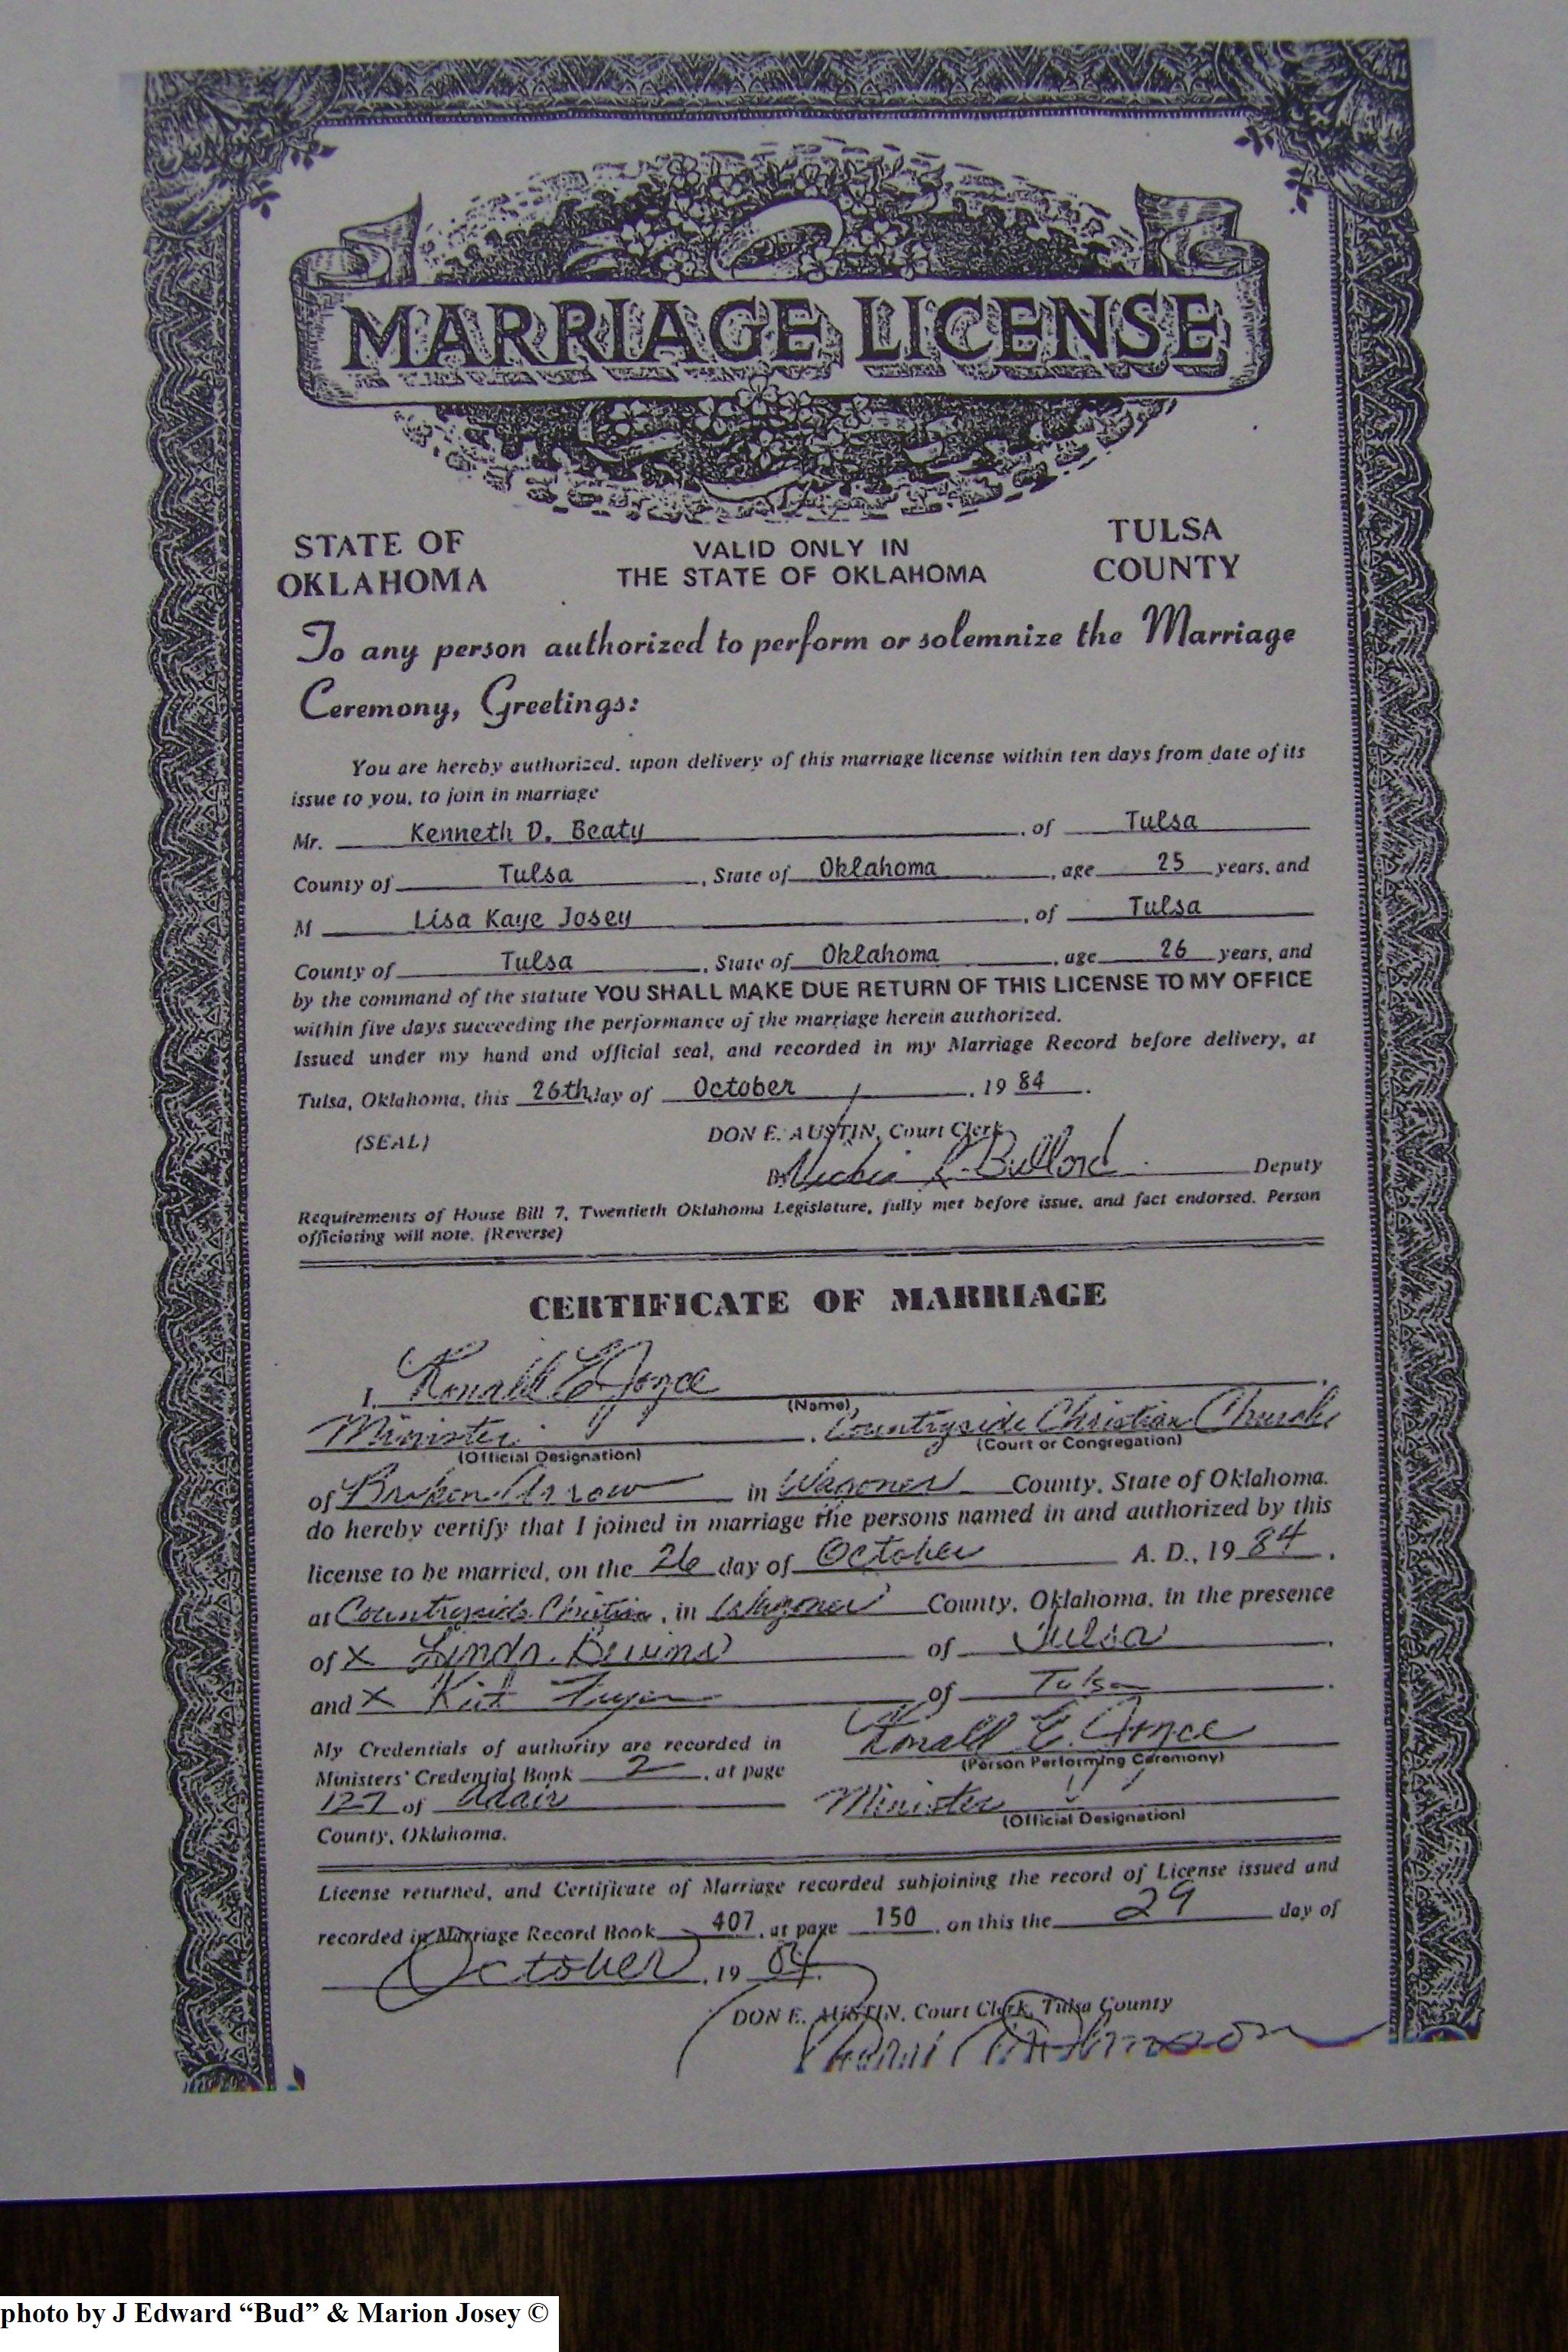 MARRIAGE LICENSE
STATE OF OKLAHOMA
VALID ONLY IN THE STATE OF OKLAHOMA
TULSA COUNTY
To any person authorized to perform or solemnize the Marriage
Ceremony, Greetings:
You are hereby authorized, upon delivery of this marriage license within ten days from date of its
issue to you, to join in marriage
Mr. Kenneth D. Beaty, of Tulsa
County of Tulsa, State of Oklahoma, age 25 years, and
M Lisa Kaye Josey, of Tulsa
County of Tulsa, State of Oklahoma, age 26 years, and
by the command of the statute YOU SHALL MAKE DUE RETURN OF THIS LICENSE TO MY OFFICE
within five days succeeding the performance of the marriage herein authorized.
Issued under my hand and official seal, and recorded in my Marriage Record before delivery, at
Tulsa, Oklahoma, this 26th day of October, 1984.
(SEAL)
DON E. AUSTIN, Court Clerk
By Deputy
Requirements of House Bill 7, Twentieth Oklahoma Legislature, fully met before issue, and fact endorsed. Person
officiating will note. (Reverse)
CERTIFICATE OF MARRIAGE
I, Ronald E Joyce
(Name),
Minister, Countryside Christian Church
(Official Designation) (Court or Congregation)
of Broken Arrow in Wagoner County, State of Oklahoma.
do hereby certify that I joined in marriage the persons named in and authorized by this
license to be married, on the 26 day of October A. D., 1984.
at Countryside Christian, in Wagoner County, Oklahoma, in the presence
of X Linda of Tulsa.
and X of Tulsa.
My Credentials of authority are recorded in
Ministers' Credential Book 2, at page
127 of Adair
County, Oklahoma.
Ronald E. Joyce
(Person Performing Ceremony)
Minister
(Official Designation)
License returned, and Certificate of Marriage recorded subjoining the record of License issued and
recorded in Marriage Record Book 407, at page 150, on this the 29 day of
October, 1984.
DON E. AUSTIN, Court Clerk, Tulsa County
photo by J Edward “Bud” & Marion Josey ©